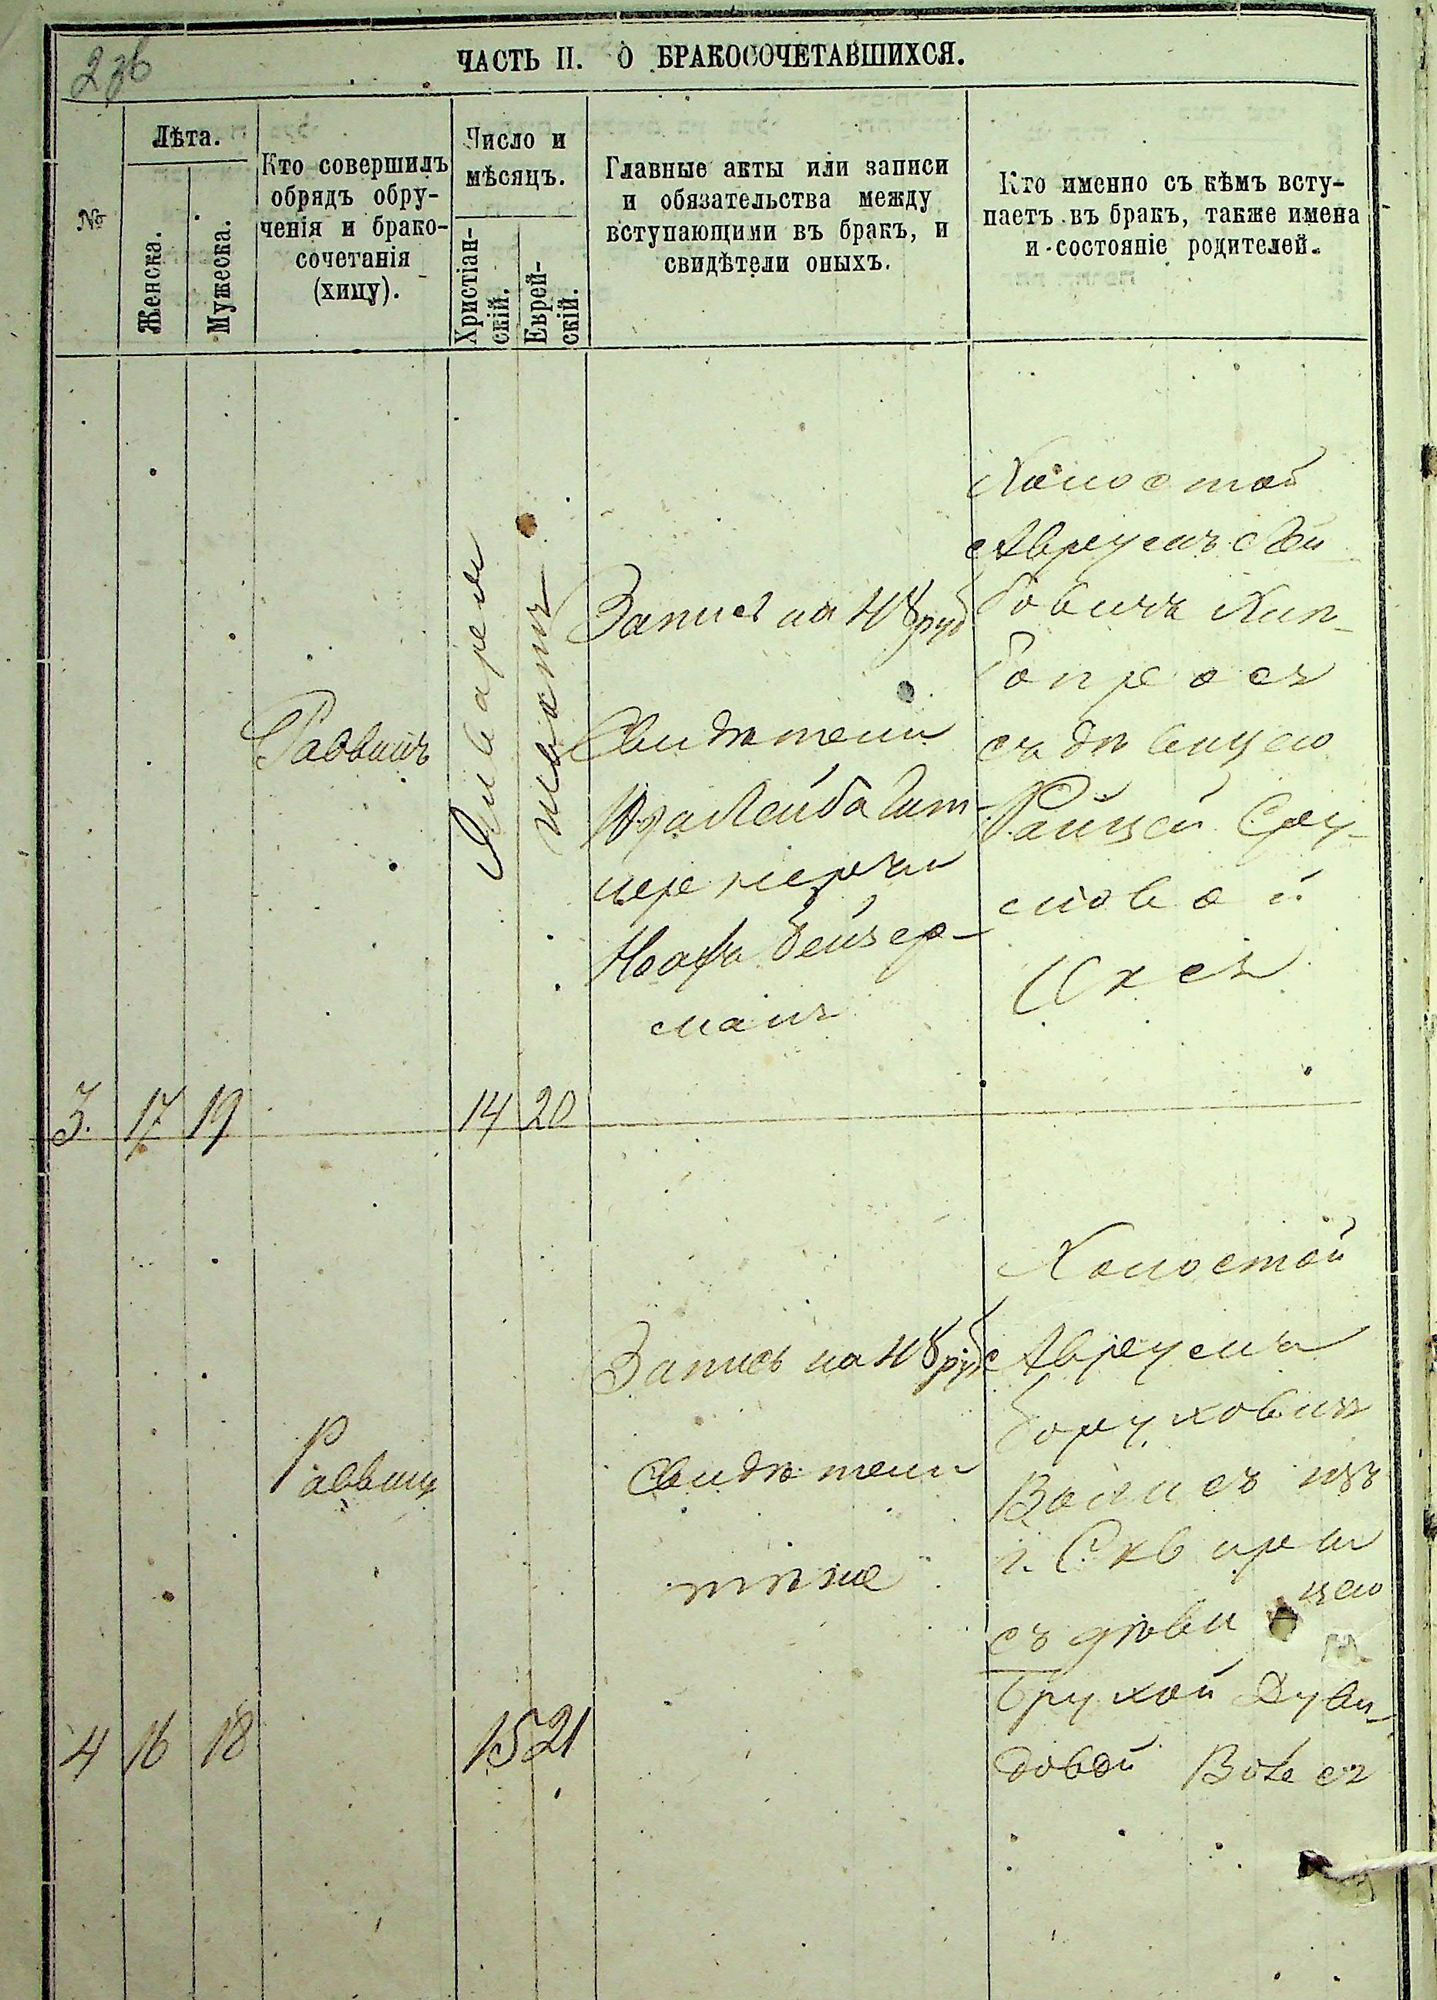 236
ЧАСТЬ II. О БРАКОСОЧЕТАВШИХСЯ.
№
Лѣта.
Женска.
Мужеска.
Кто совершилъ
обрядъ обру-
ченія и брако-
сочетанія
(хипу).
Число и
мѣсяцъ.
Христіан-
скій.
Еврей-
скій.
Главные акты или записи
и обязательства между
вступающими въ бракъ, и
свидѣтели оныхъ.
Кто именно съ кѣмъ всту-
паетъ въ бракъ, также имена
и состояніе родителей.
3.
17
19
Раввинъ
Января
14
Шватъ
20
Запись на 48 руб
Свидѣтели
Лейба
Бейзер-
манъ
Холостой
Аврумъ Лей
бовичъ
съ дѣвицею
Сру-
левой
4
16
18
Раввинъ
15
21
Запись на 48 руб
Свидѣтели
тѣже
Холостой
Аврумъ
Боруховичъ
изъ
г. Сквиры
съ дѣви цею
Брухой Дуви-
довой